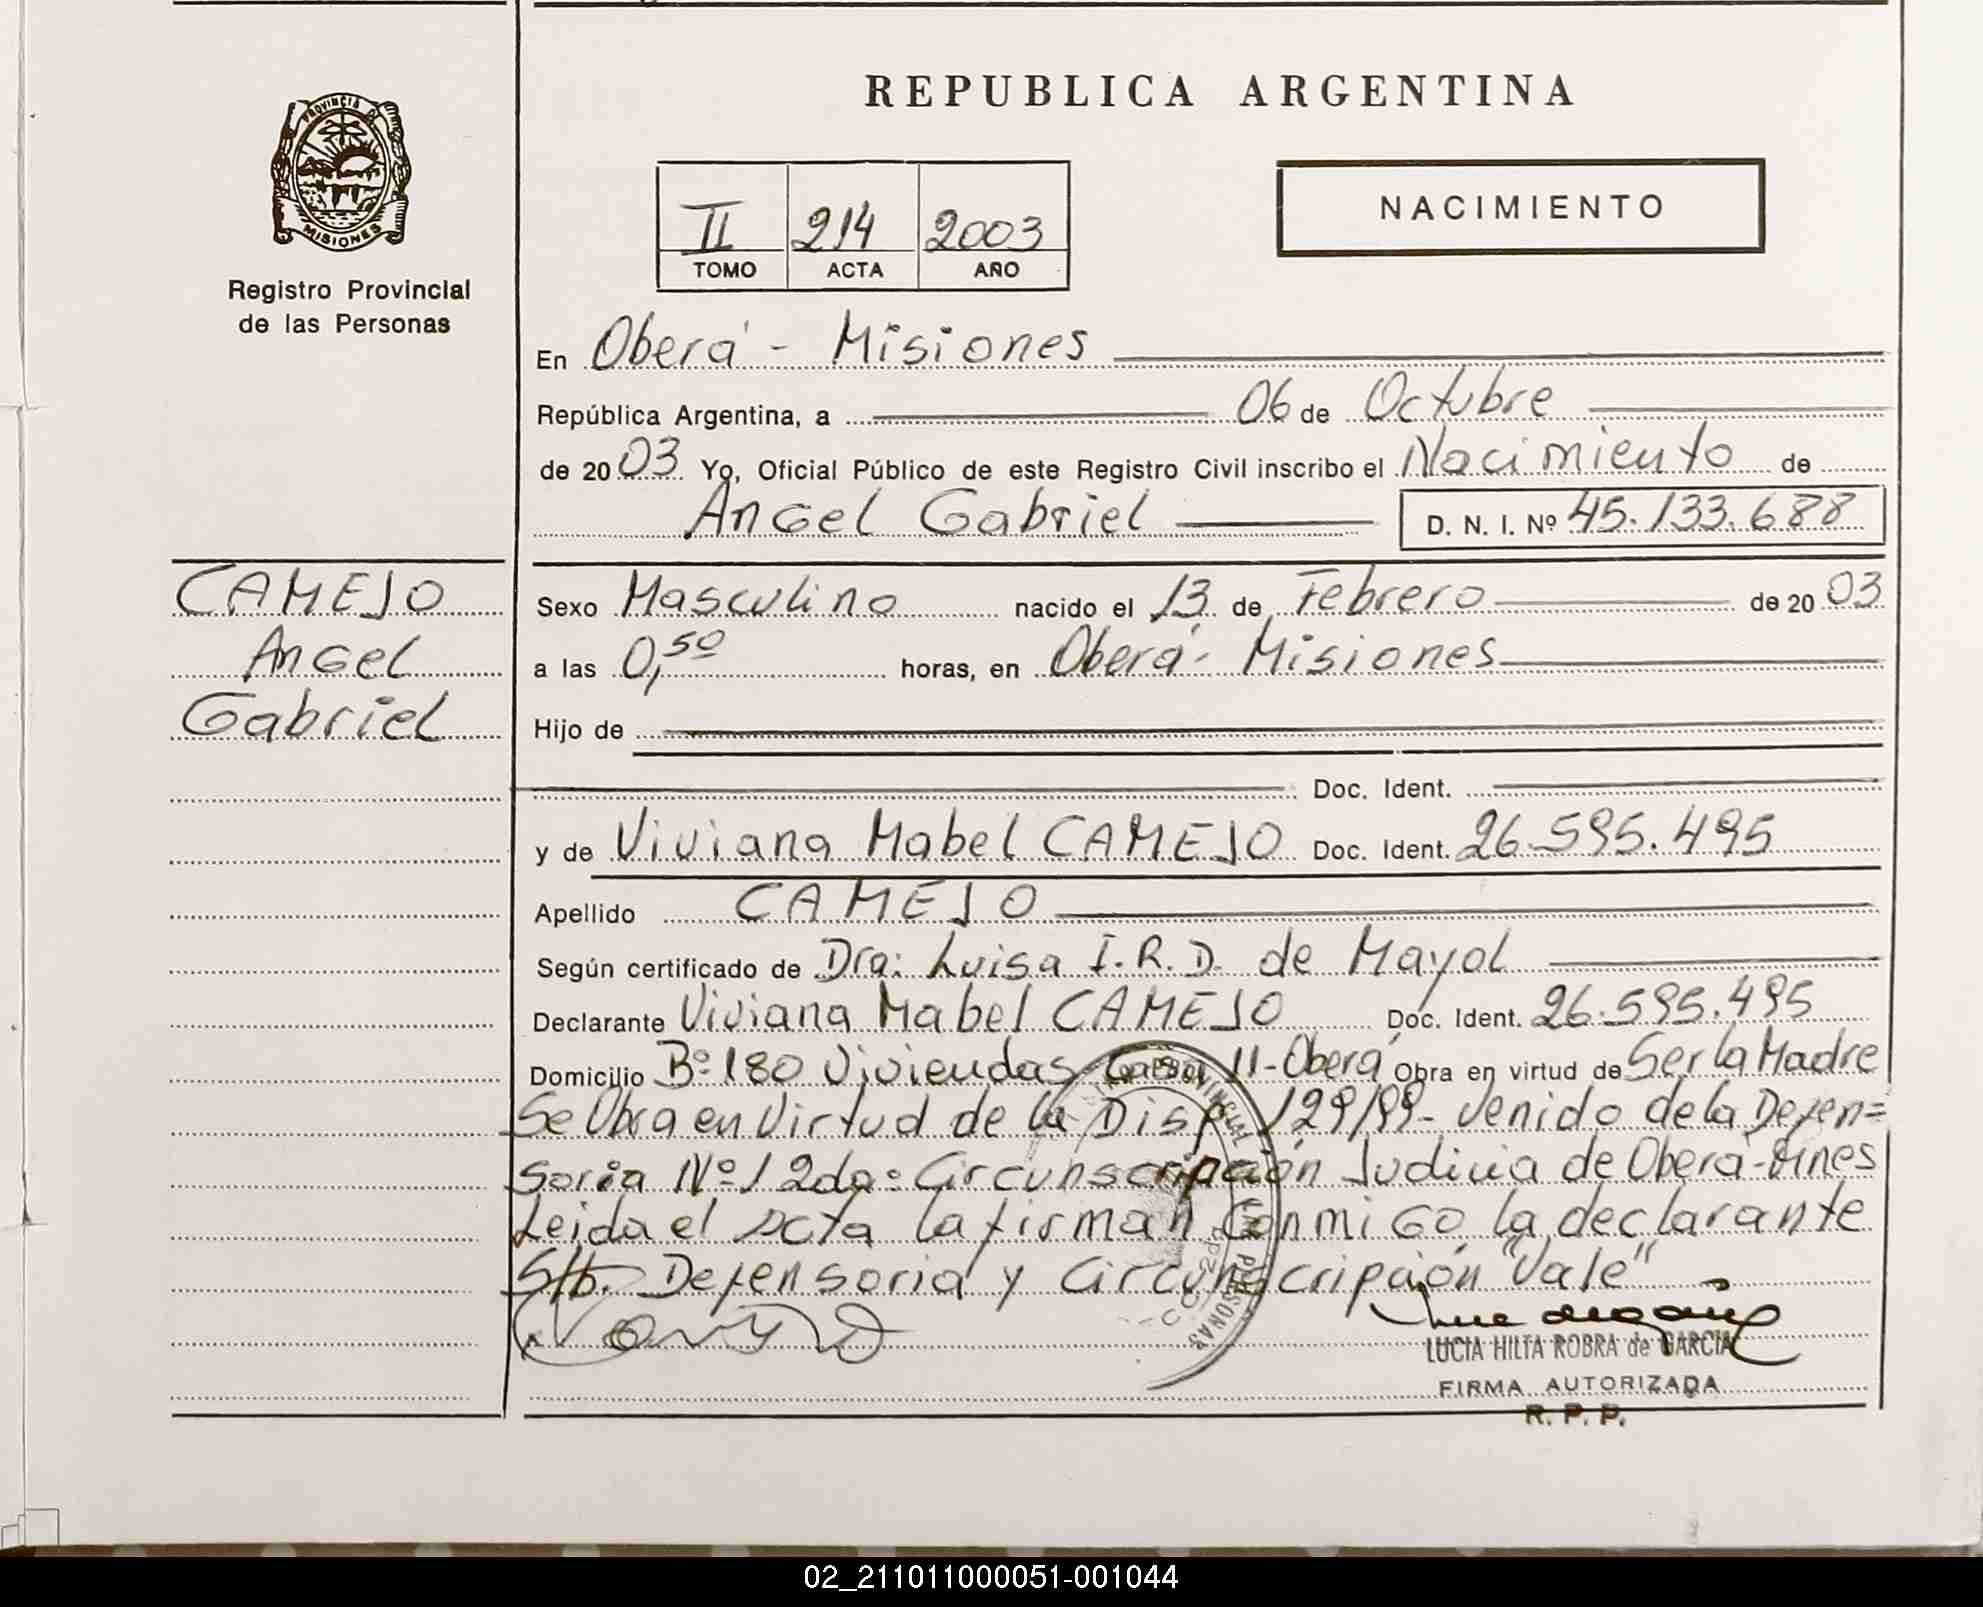 REPUBLICA ARGENTINA
PROVINCIA DE
MISIONES
Registro Provincial
de las Personas
II 214 2003
TOMO ACTA AÑO
NACIMIENTO
En Oberá - Misiones
República Argentina, a 06 de Octubre
de 2003 Yo, Oficial Público de este Registro Civil inscribo el Nacimiento de
Angel Gabriel D. N. I. Nº 45.133.688
CAMEJO
Angel
Gabriel
Sexo Masculino nacido el 13 de Febrero de 2003
a las 0,50 horas, en Oberá - Misiones
Hijo de
Doc. Ident.
y de Viviana Mabel CAMEJO Doc. Ident. 26.595.495
Apellido CAMEJO
Según certificado de Dra: Luisa I.R.D. de Mayol
Declarante Viviana Mabel CAMEJO Doc. Ident. 26.595.495
Domicilio Bº 180 Viviendas Casa 11-Oberá Obra en virtud de Ser la Madre
Se Obra en Virtud de la Disp. 129/99- Venido de la Defen=
soria Nº 1 2da: Circunscripción Judicia de Oberá-Mnes
Leida el Acta la firman conmigo, la declarante
S/b. Defensoria y Circunscripción "Vale"
LUCIA HILTA ROBRA de GARCIA
FIRMA AUTORIZADA
R. P. P.
02_211011000051-001044